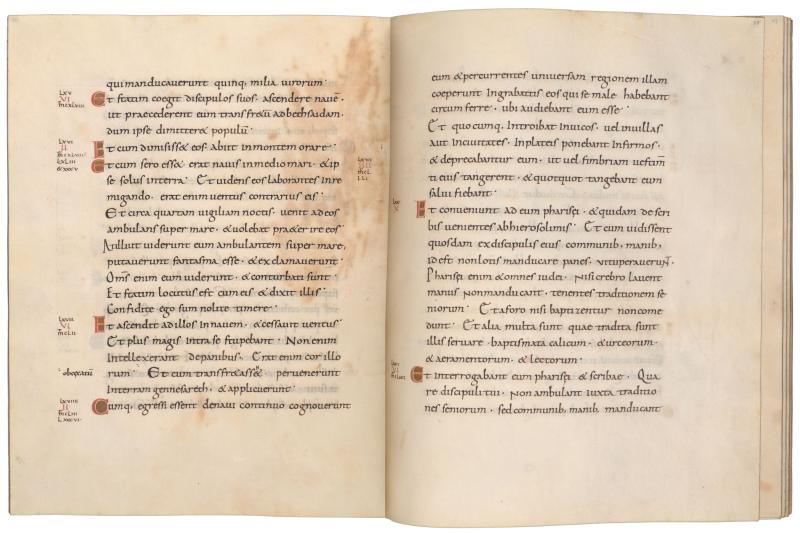 qui manducaverunt quinq; milia virorum ·
Et statim coegit discipulos suos · ascendere navē ·
ut praecederent eum trans fretū ad bethsaidan ·
dum ipse dimitteret populū ·
Et cum dimisisset eos abiit in montem orare ·
Et cum sero esset · erat navis in medio mari · & ip
se solus in terra · Et videns eos laborantes in re
migando · erat enim ventus contrarius eis ·
Et circa quartam vigiliam noctis · venit ad eos
ambulans super mare · & volebat praeterire eos
At illi ut viderunt eum ambulantem super mare ·
putaverunt fantasma esse · & exclamaverunt ·
Om̄s enim eum viderunt · & conturbati sunt ·
Et statim locutus est cum eis & dixit illis ·
Confidite ego sum nolite timere ·
Et ascendit ad illos in navem · & cessavit ventus ·
Et plus magis intra se stupebant · Non enim
Intellexerant de panibus · Erat enim cor illo
rum · Et cum transfretassent pervenerunt
Interram gennesareth · & applicuerunt ·
Cumq; egressi essent de navi continuo cognoverunt
LXV
VI
LXVI
II
LXVII
VI
obcecatū
LXVIIII
II
eum & percurrentes universam regionem illam
coeperunt Ingrabattis eos qui se male habebant
circum ferre · ubi audiebant eum esse ·
Et quo cumq; Introibat In vicos · vel in villas
aut in civitates · In plateis ponebant Infirmos ·
& deprecabantur eum · ut vel fimbriam vestim̄
ti eius tangerent · & quotquot tangebant eum
salvi fiebant ·
Et conveniunt ad eum pharisei · & quidam de scri
bis venientes ab hierosolimis · Et cum vidissent
quosdam ex discipulis eius communib; manib;
id est non lotis manducare panes · vituperaverunt ·
Pharisei enim & omnes iudei · Nisi crebro lavent
manus Non manducant · tenentes traditionem se
niorum · Et a foro nisi baptizentur non come
dunt · Et alia multa sunt quae tradita sunt
illis servare · baptismata calicum · & urceorum ·
& aeramentorum · & lectorum ·
Et interrogabant eum pharisei & scribae · Qua
re discipuli tui · Non ambulant Iuxta traditio
nes seniorum · sed communib; manib; manducant